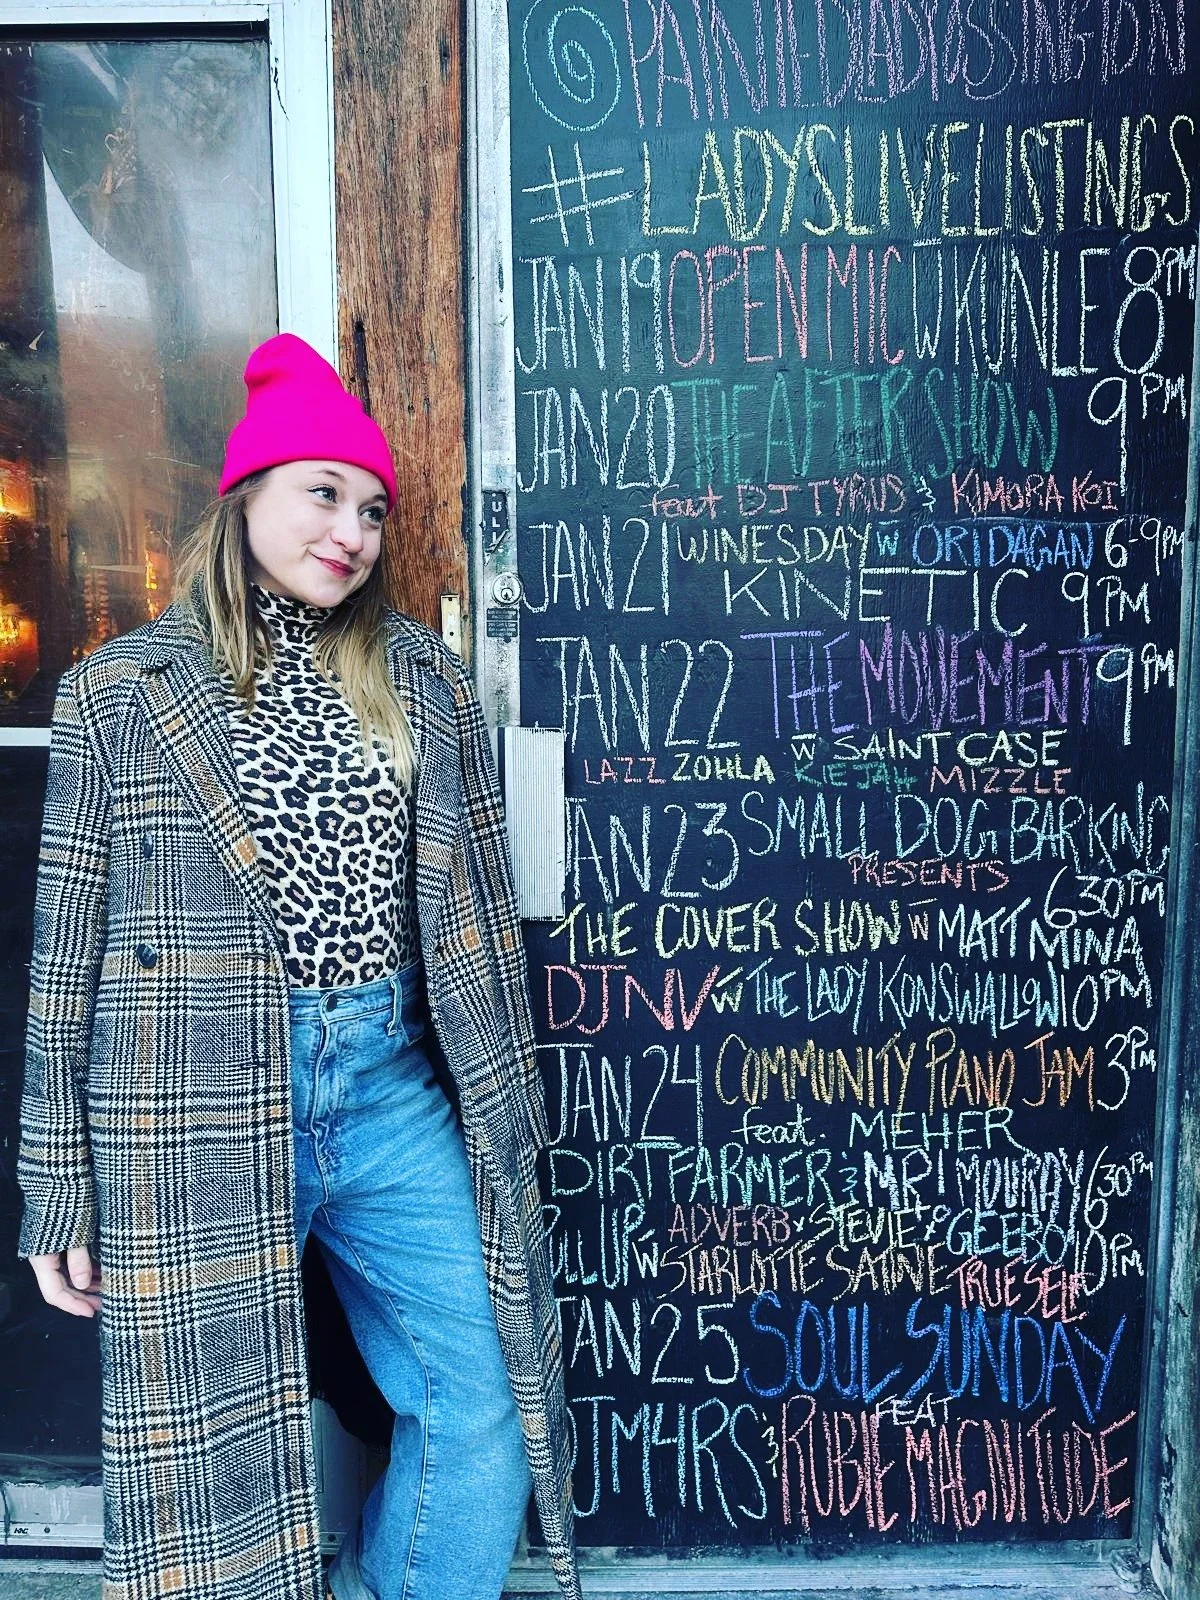 @PAINTEDLADYOSSINGTON
#LADYSLIVELISTINGS
JAN 19 OPEN MIC W KUNLE 8PM
JAN 20 THE AFTER SHOW 9PM
feat DJ TYRUS & KIMORA KOI
JAN 21 WINESDAY W ORI DAGAN 6-9PM
KINETIC 9PM
JAN 22 THE MOVEMENT 9PM
W SAINT CASE
LAZZ ZOHLA KIEJAH MIZZLE
JAN 23 SMALL DOG BARKING
PRESENTS 630PM
THE COVER SHOW W MATT MINA
DJ NV W THE LADY KONSWALLOW 10PM
JAN 24 COMMUNITY PIANO JAM 3PM
feat. MEHER
DIRT FARMER & MR! MOURAY 630PM
PULL UP W ADVERB STEVIE GEEBO 10PM
STARLOTTE SATINE TRUESELF
JAN 25 SOUL SUNDAY
FEAT
DJ M4RS & RUBIE MAGNITUDE